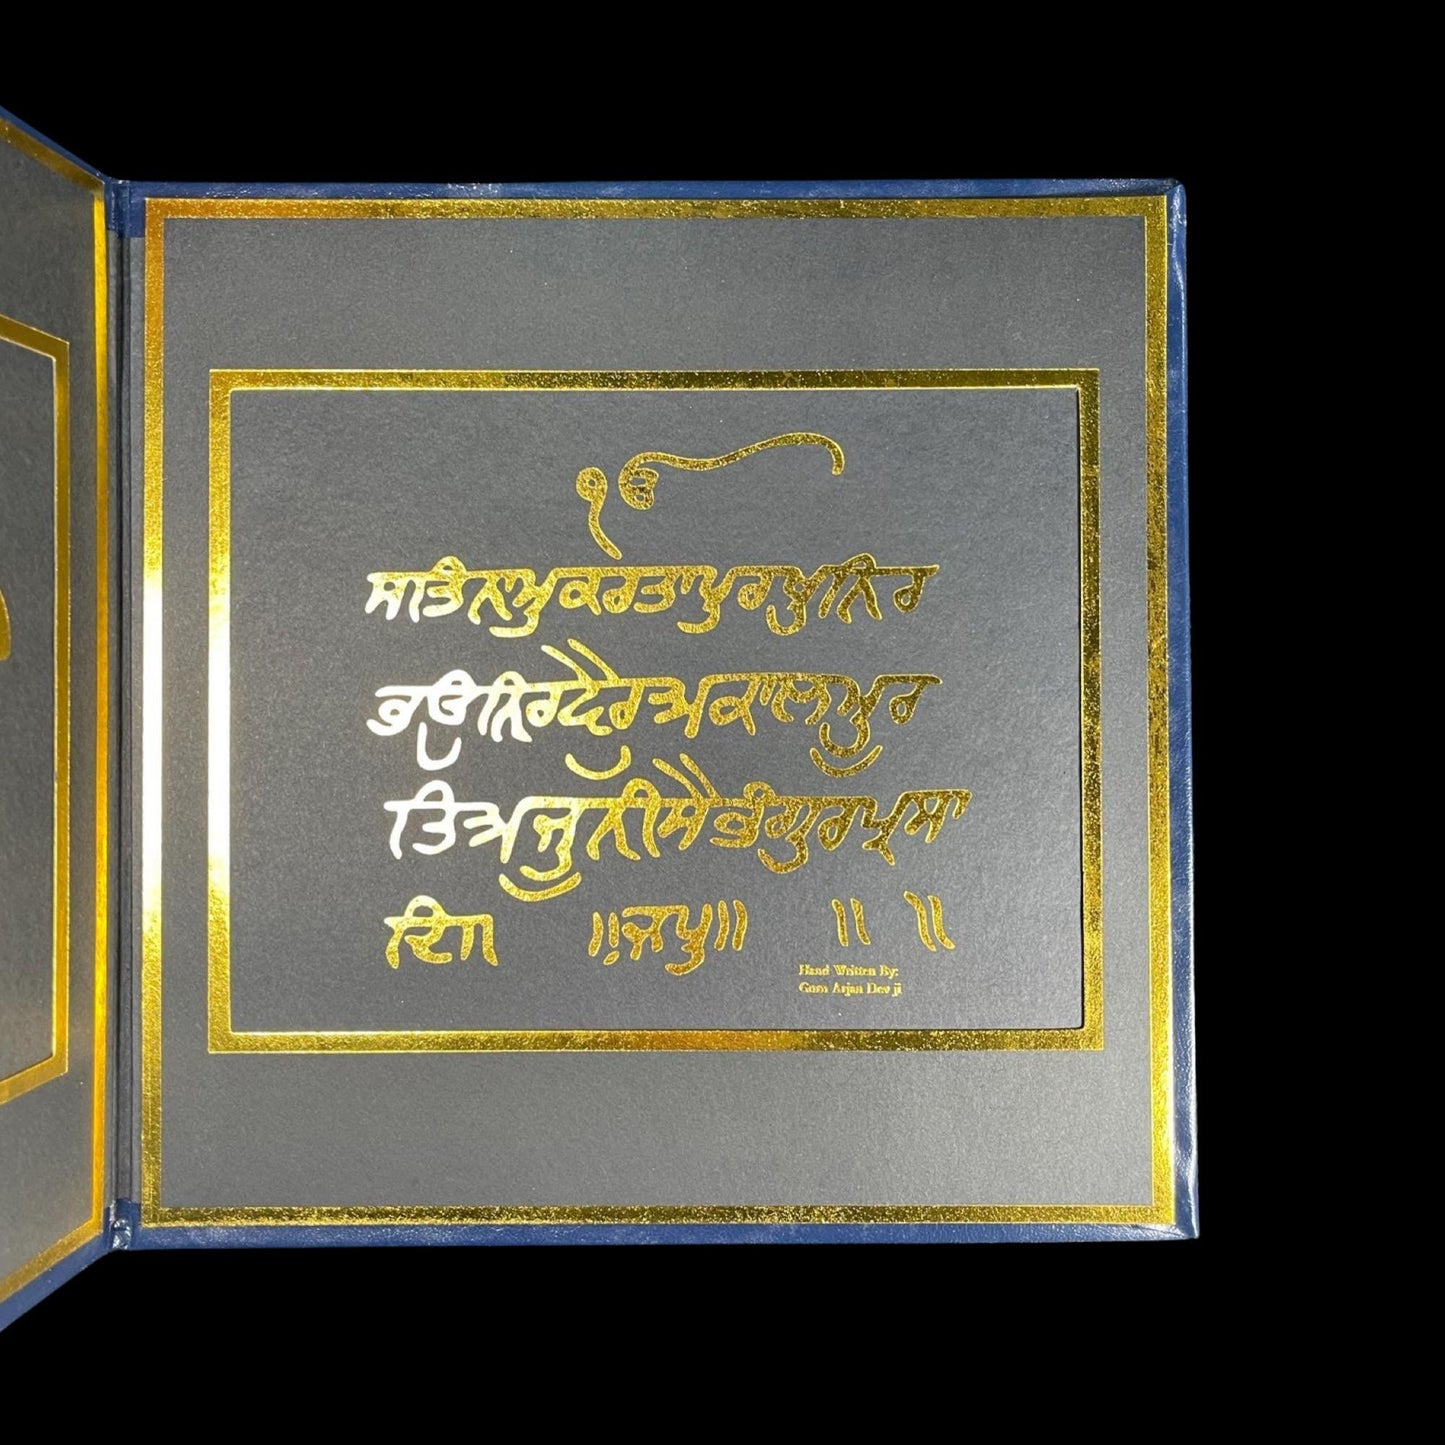 ੴ
ਸਤਿਨਾਮੁਕਰਤਾਪੁਰਖੁਨਿਰ
ਭਉਨਿਰਵੈਰੁਅਕਾਲਮੂਰ
ਤਿਅਜੂਨੀਸੈਭੰਗੁਰਪ੍ਰਸਾ
ਦਿ॥ ॥ਜਪੁ॥ ॥ ॥
Hand Written By:
Guru Arjan Dev ji